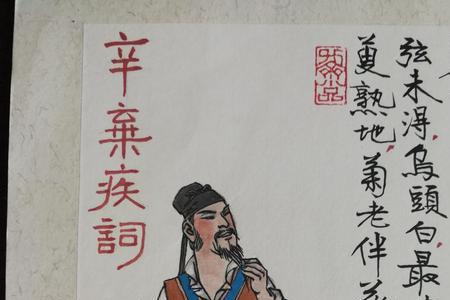 弦未淂,烏頭白,最
萸熟地,菊老伴
辛棄疾詞